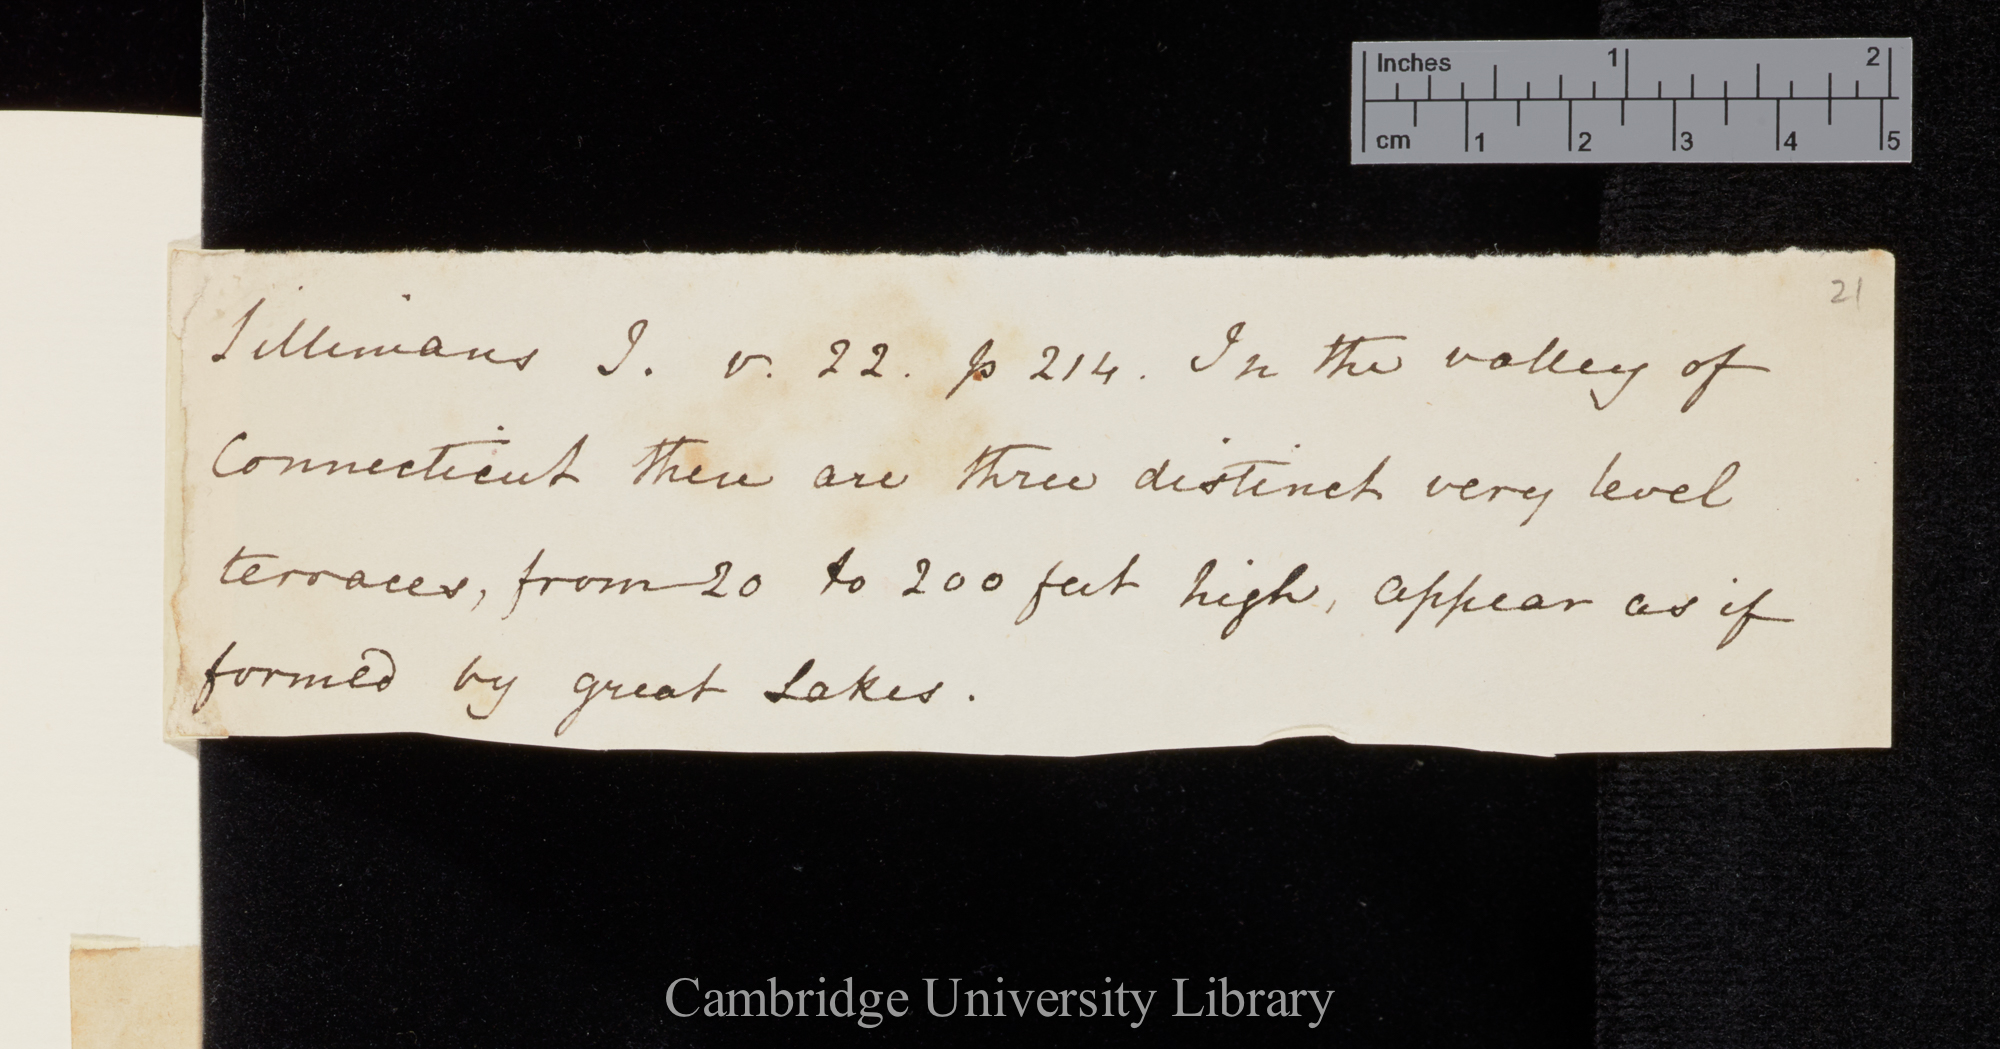 Inches 1 2
cm 1 2 3 4 5
21
Sillimans J. v. 22. p 214. In the valley of
Connecticut there are three distinct very level
terraces, from 20 to 200 feet high, appear as if
formed by great Lakes.
Cambridge University Library